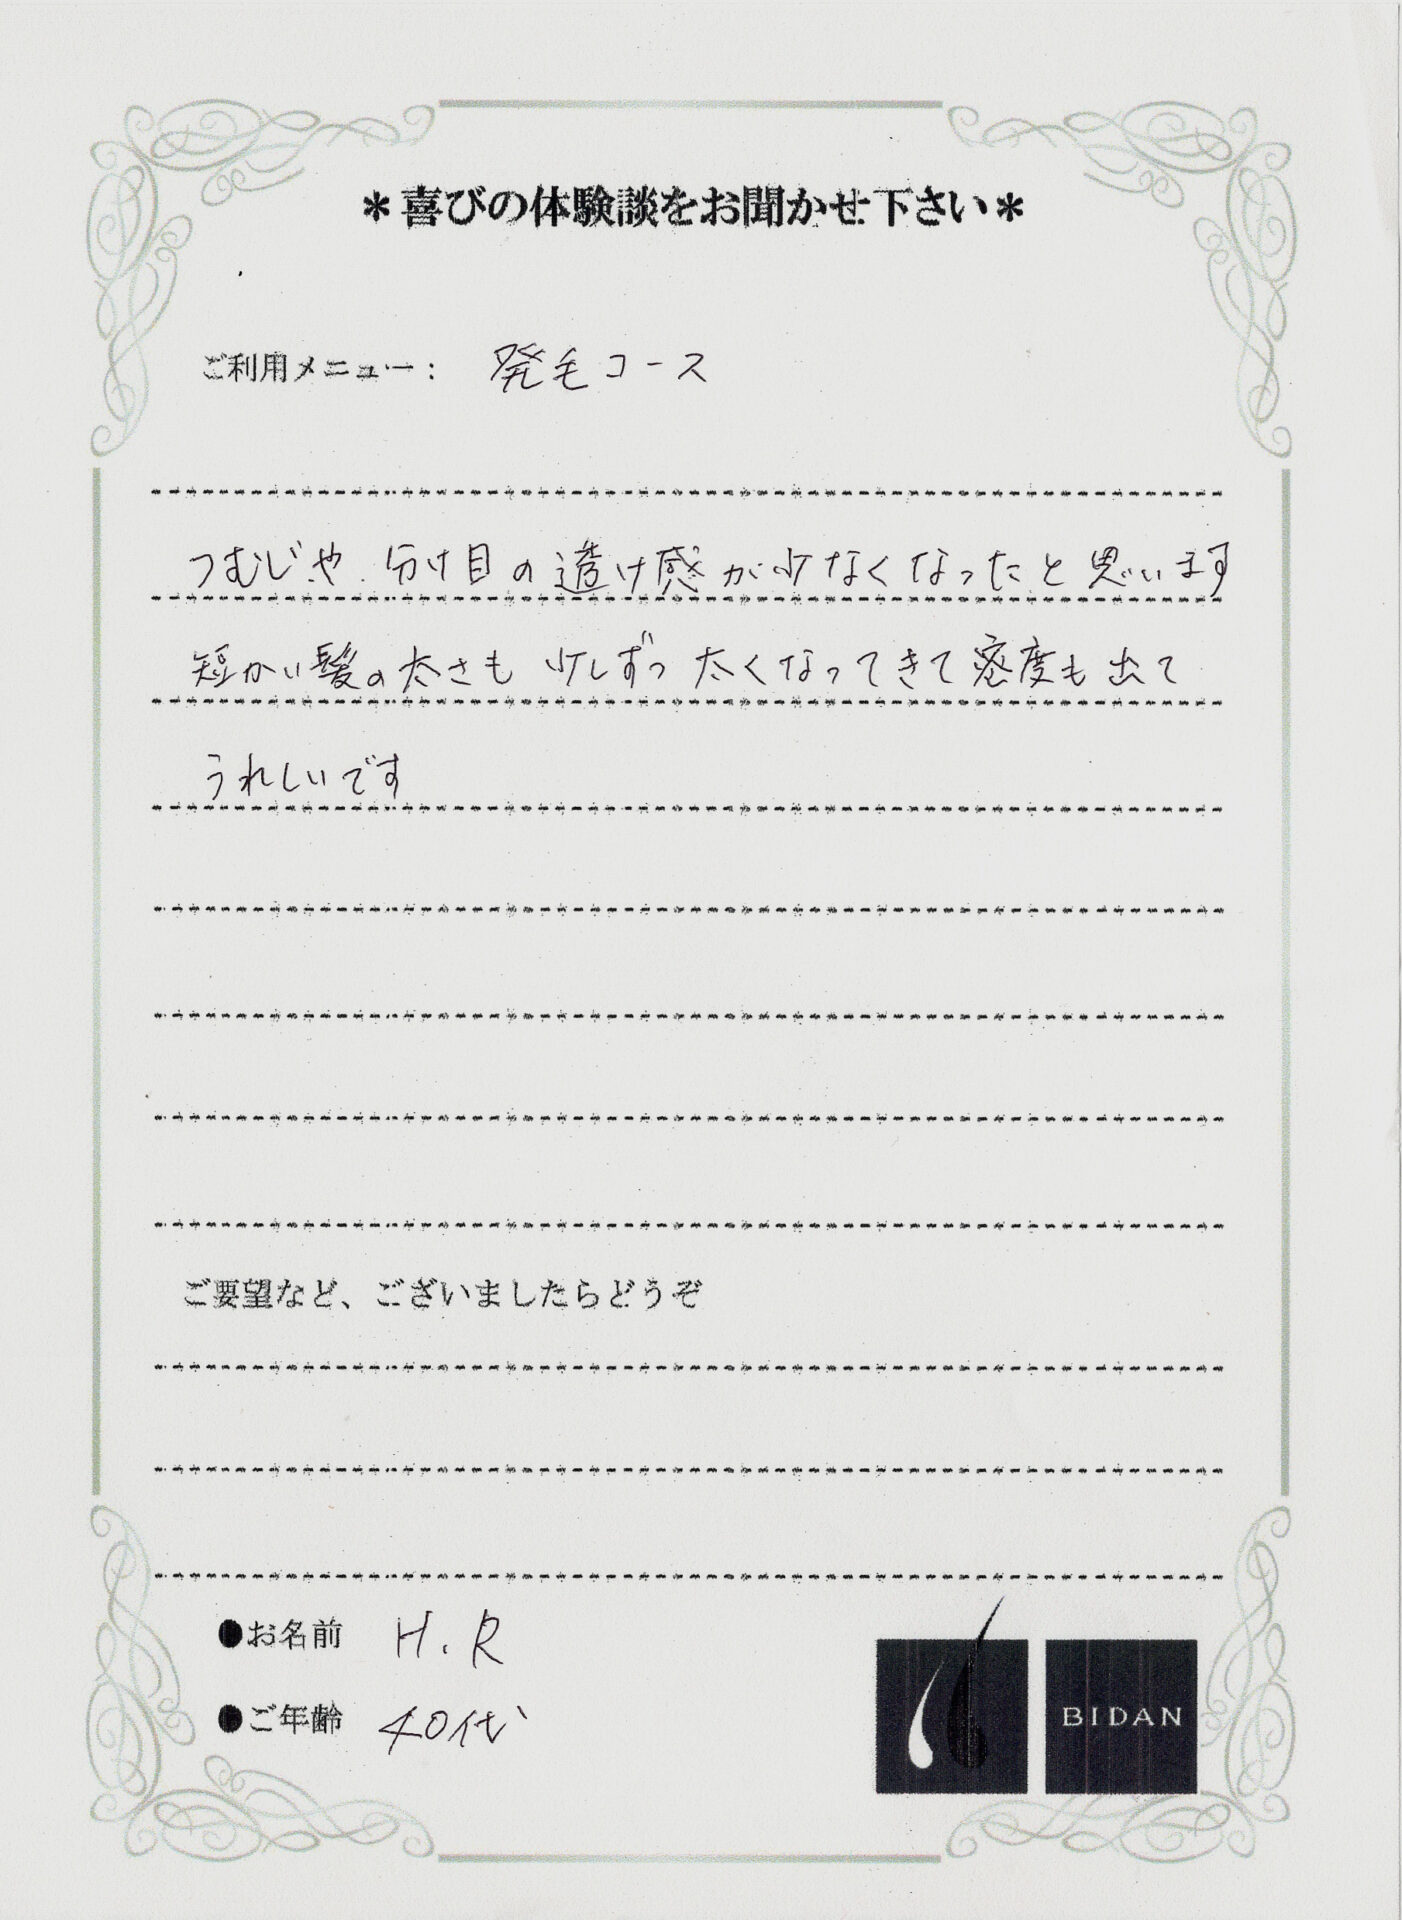 ＊喜びの体験談をお聞かせ下さい＊
ご利用メニュー： 発毛コース
つむじや、分け目の透け感が少なくなったと思います
短かい髪の太さも少しずつ太くなってきて密度も出て
うれしいです
ご要望など、ございましたらどうぞ
●お名前 H.R
●ご年齢 40代
BIDAN